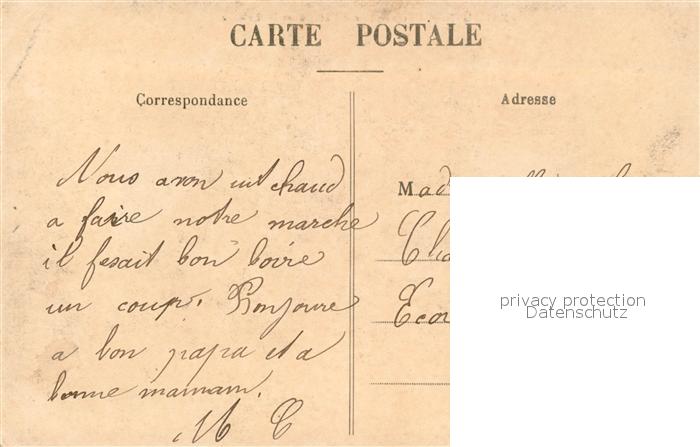 CARTE POSTALE
Correspondance
Adresse
Nous avon ut chaud
a faire notre marche
il fesait bon boire
un coup. Bonjoure
a bon papa et a
bonne mamam.
M C
privacy protection
Datenschutz